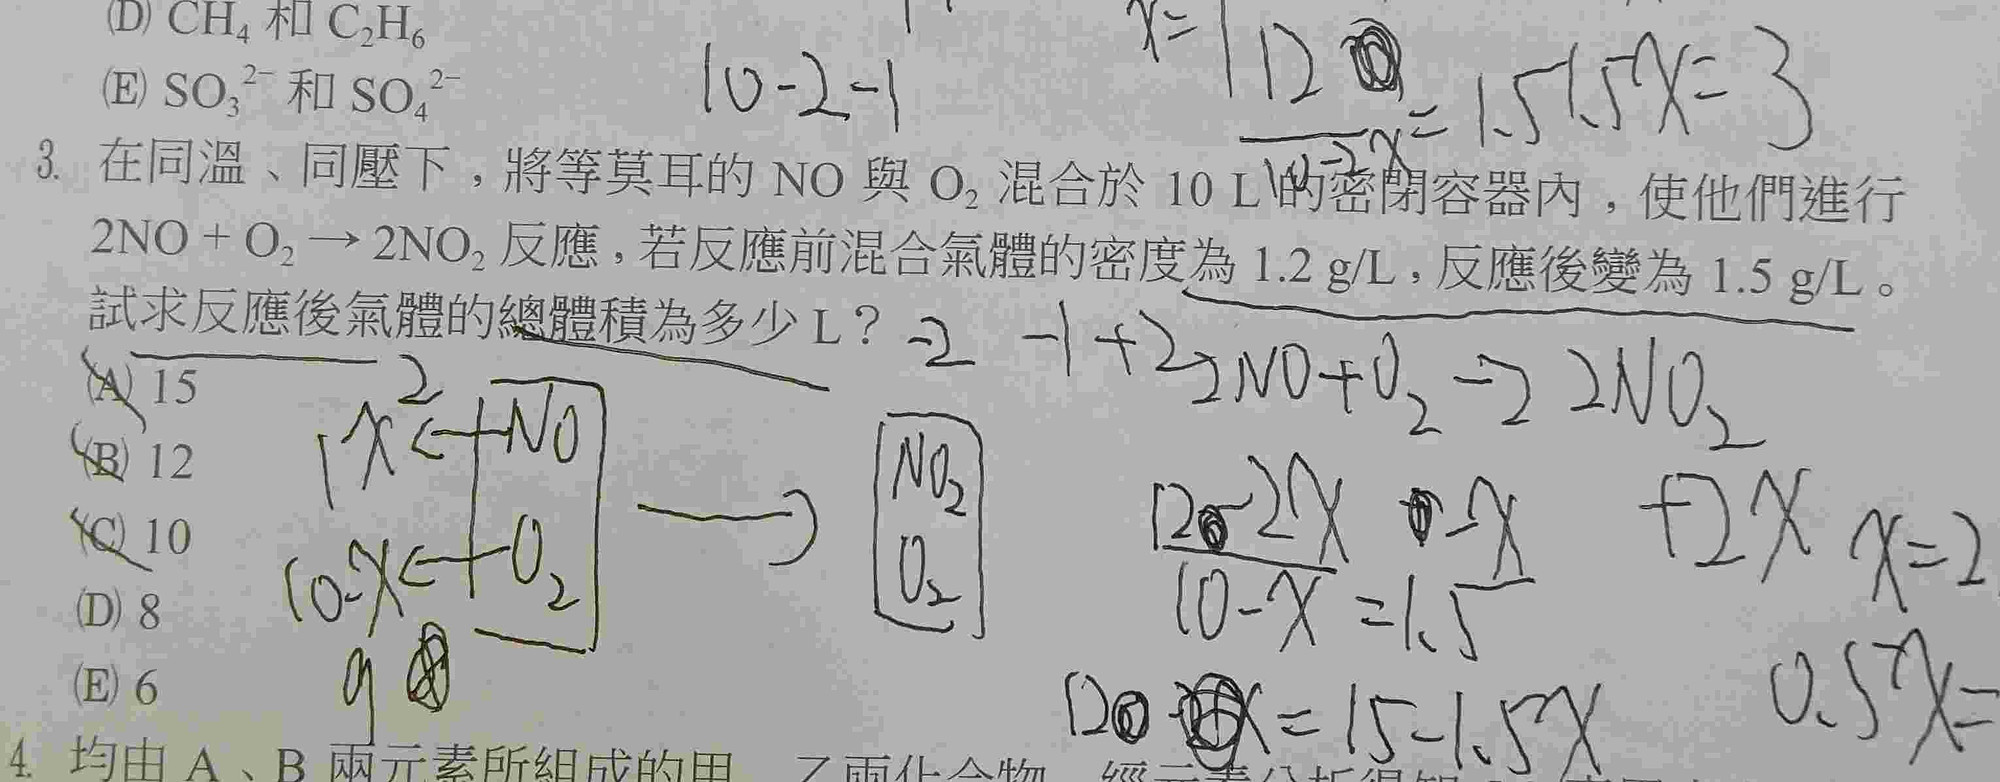 (D) CH₄ 和 C₂H₆
(E) SO₃²⁻ 和 SO₄²⁻
10-2-1
x=1
12
10-2x
=1.5
1.5x=3
3. 在同溫、同壓下，將等莫耳的 NO 與 O₂ 混合於 10 L 的密閉容器內，使他們進行
2NO + O₂ → 2NO₂ 反應，若反應前混合氣體的密度為 1.2 g/L，反應後變為 1.5 g/L。
試求反應後氣體的總體積為多少 L？
-2 -1 +2
2NO+O₂→2NO₂
(A) 15
(B) 12
(C) 10
(D) 8
(E) 6
2
1x←NO
10-x←O₂
9
NO₂
O₂
-2x -x +2x
12
10-x =1.5
x=2
12=15-1.5x
0.5x=
4. 均由 A、B 兩元素所組成的甲、乙兩化合物，經元素分析得知